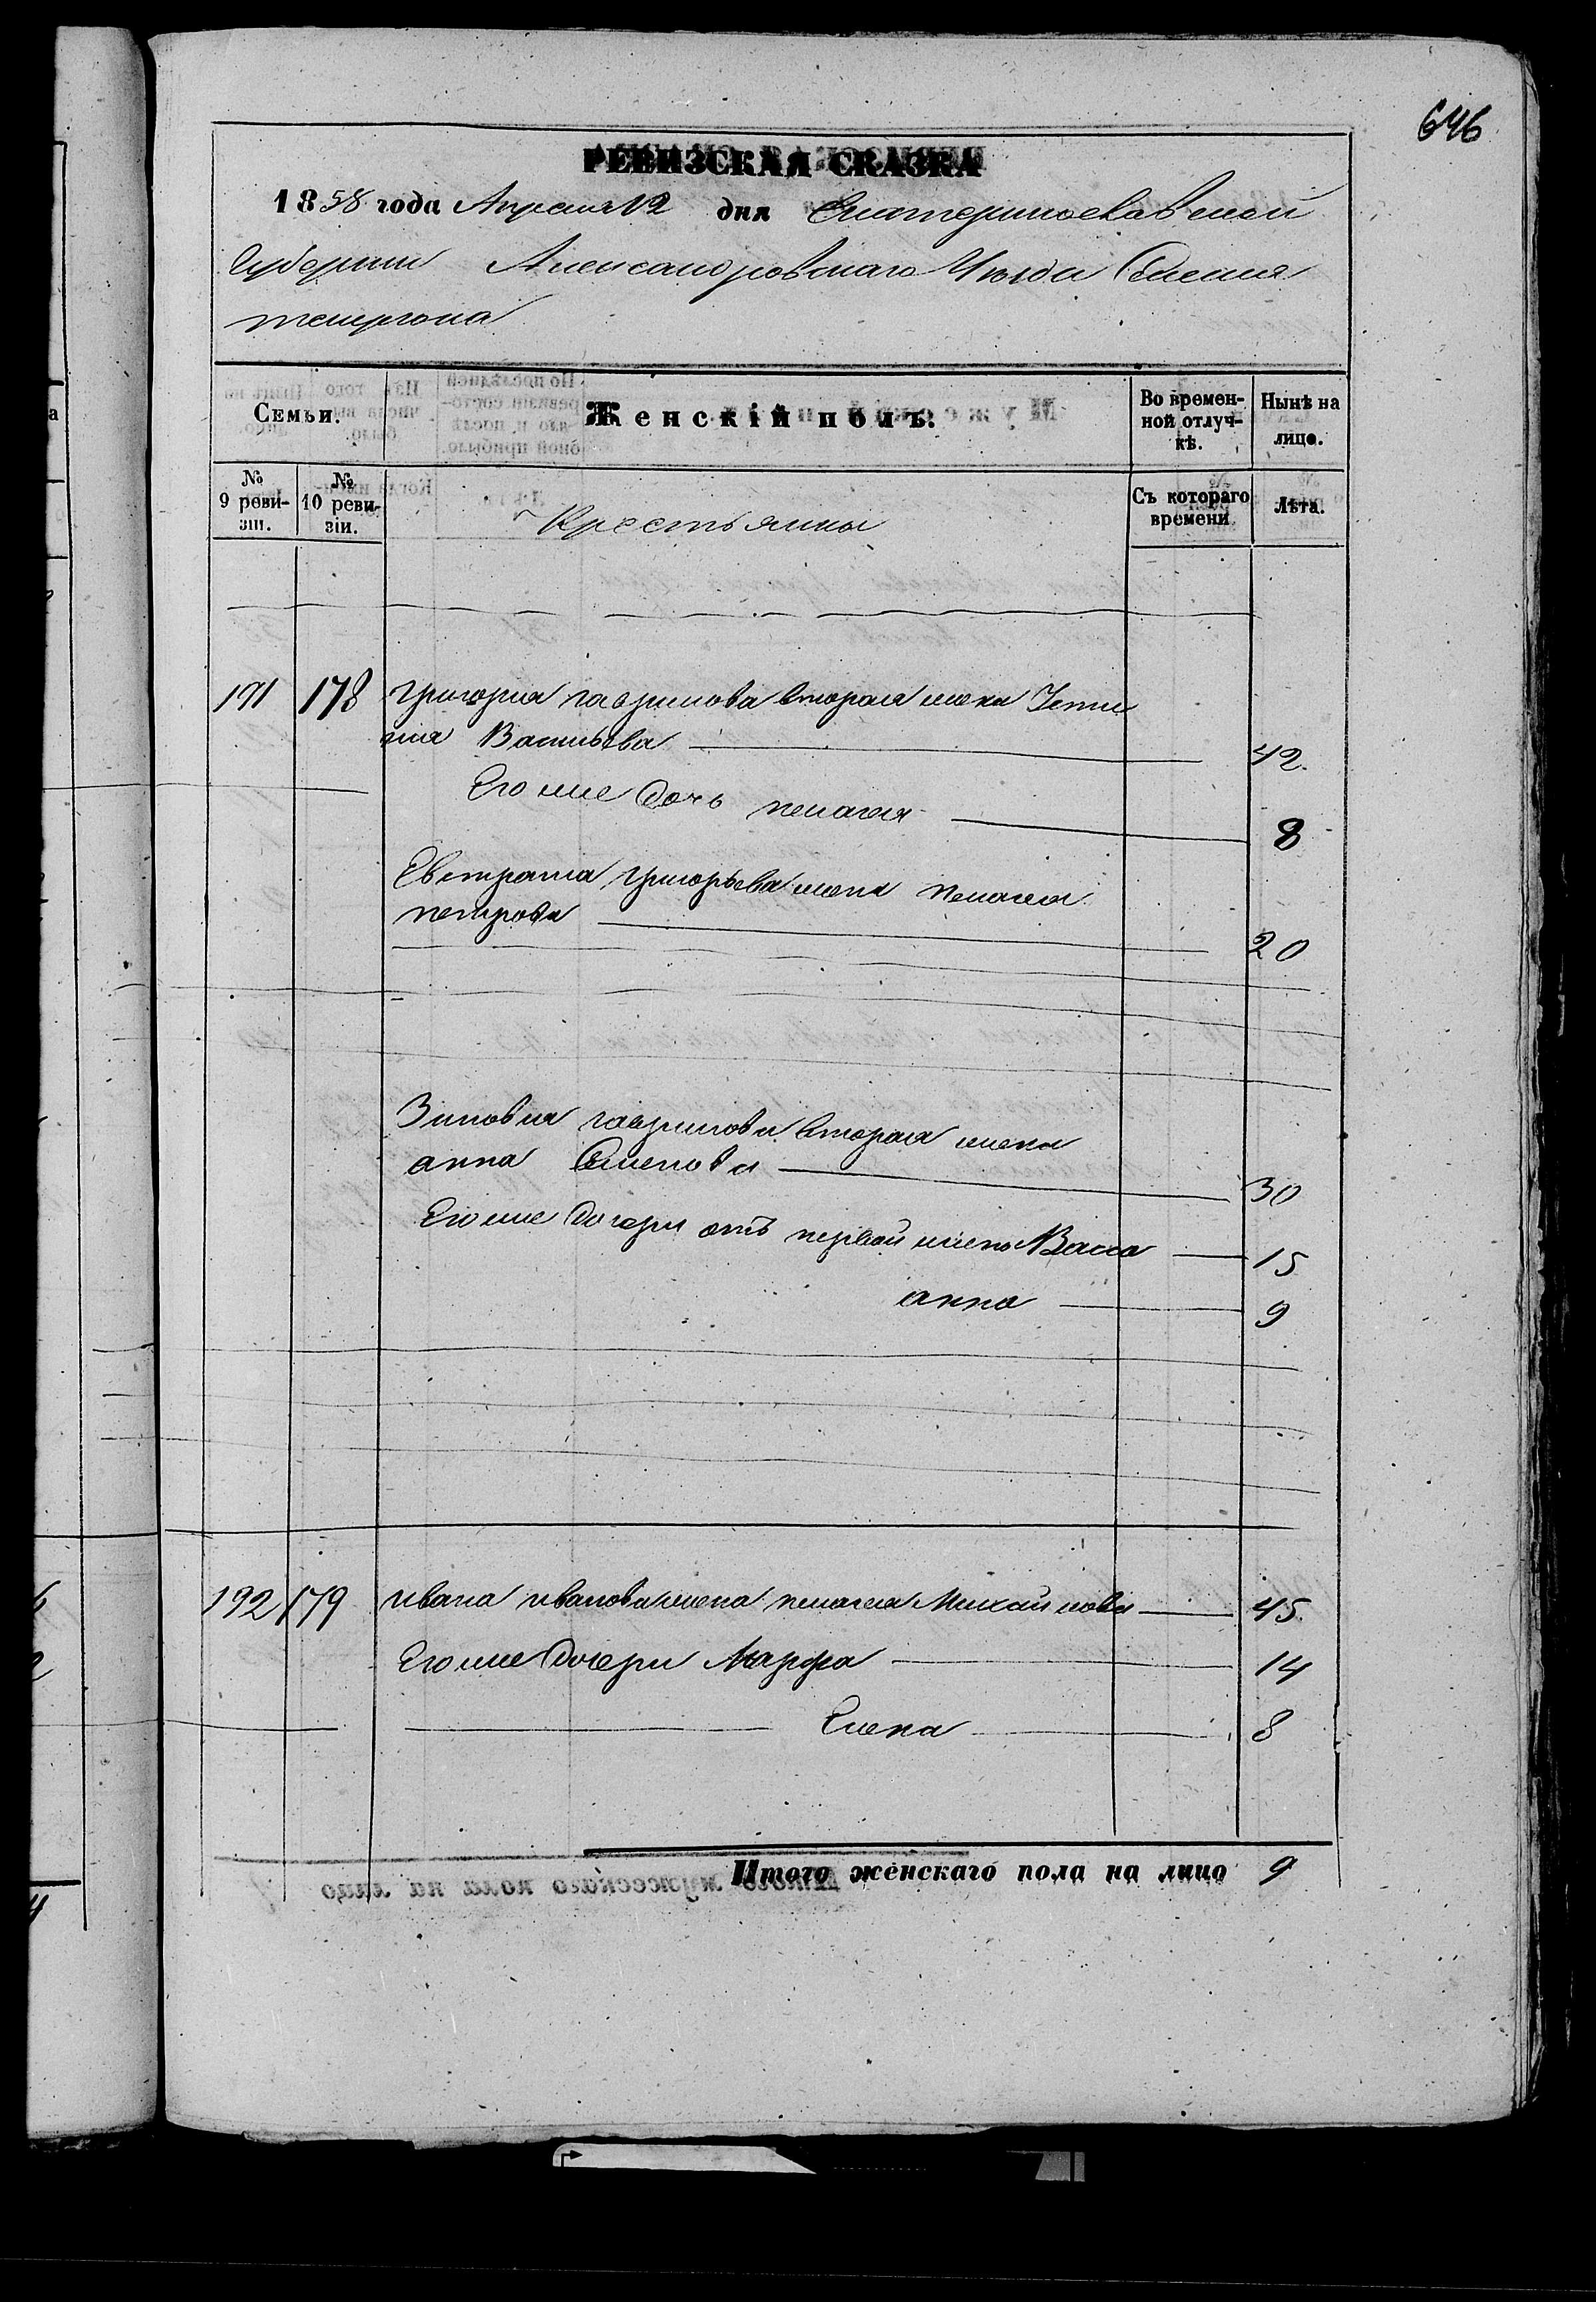 646
РЕВИЗСКАЯ СКАЗКА
1858 года Апреля 12 дня Екатеринославской
Губернии Александровскаго Уѣзда Селения
темргова
Семьи. Женскій полъ. Во времен-ной отлуч-кѣ. Нынѣ на лицо.
№ 9 реви-зіи. № 10 реви-зіи. Крестьянки Съ котораго времени. Лѣта.
191 178 Григория гаврилова вторая жена Устини
ния Васильева 42
Его же дочь пелагея 8
Евстратия григорьева жена пелагея
петрова 20
Зиновия гаврилова вторая жена
анна Семенова 30
Его же дочери отъ первой жены Васса 15
анна 9
192 179 ивана иванова жена пелагея Михайлова 45
Его же дочери Марфа 14
Елена 8
Итого женскаго пола на лицо 9